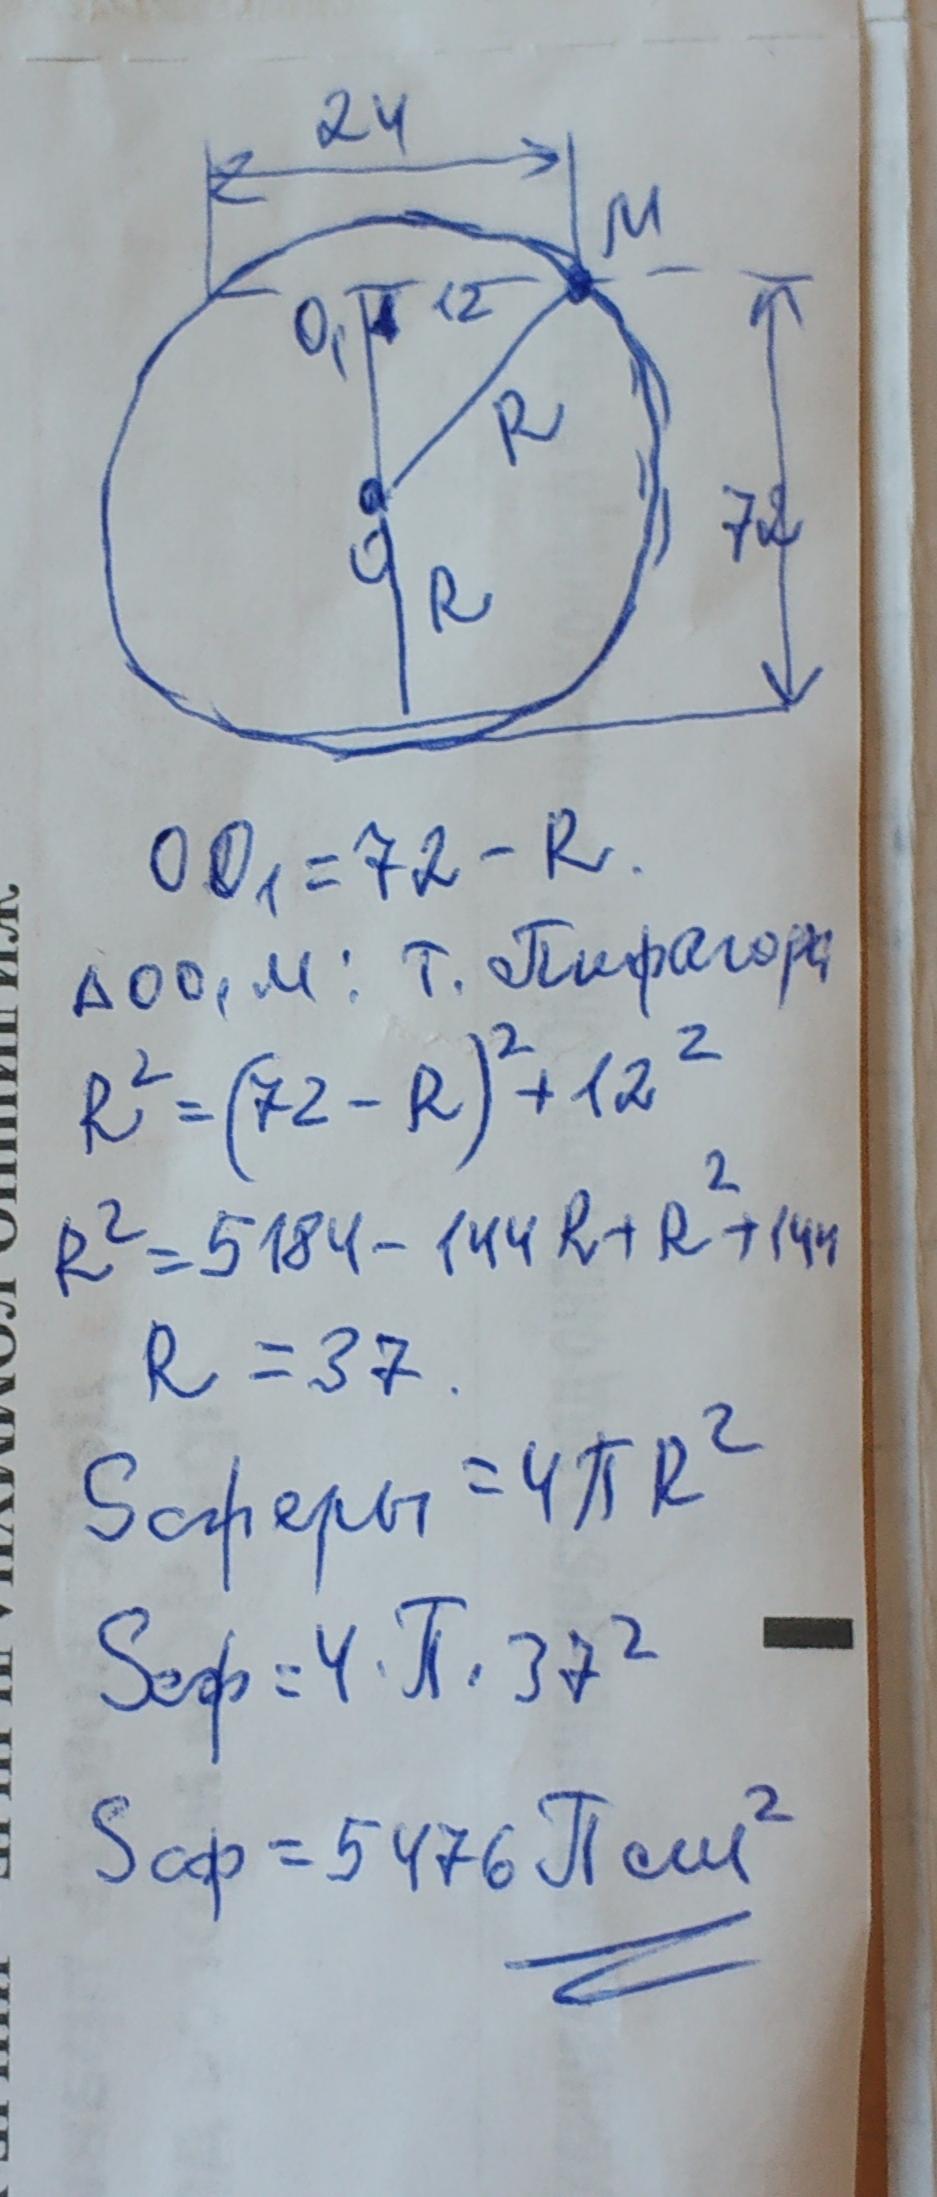 24
M
O₁ 12
R
72
O
R
OO₁ = 72 - R.
ΔOO₁M: т. Пифагора
R² = (72 - R)² + 12²
R² = 5184 - 144R + R² + 144
R = 37.
Sсферы = 4πR²
Sсф = 4·π·37²
Sсф = 5476π см²